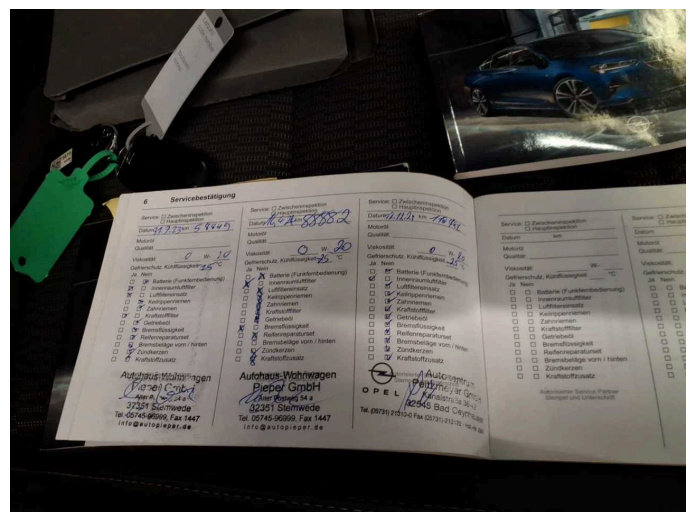 6 Servicebestätigung
Service: □ Zwischeninspektion
□ Hauptinspektion
Datum km 59449
Motoröl
Qualität
Viskosität: 0 w- 20
Gefrierschutz, Kühlflüssigkeit -25 °C
Ja Nein
Batterie (Funkfernbedienung)
Innenraumluftfilter
Luftfiltereinsatz
Keilrippenriemen
Zahnriemen
Kraftstofffilter
Getriebeöl
Bremsflüssigkeit
Reifenreparaturset
Bremsbeläge vorn / hinten
Zündkerzen
Kraftstoffzusatz
Autohaus-Wohnwagen
Pieper GmbH
54 a
32351 Stemwede
Tel. 05745-96999, Fax 1447
info@autopieper.de
Service: □ Zwischeninspektion
□ Hauptinspektion
Datum km 88882
Motoröl
Qualität
Viskosität: 0 w- 20
Gefrierschutz, Kühlflüssigkeit -25 °C
Ja Nein
Batterie (Funkfernbedienung)
Innenraumluftfilter
Luftfiltereinsatz
Keilrippenriemen
Zahnriemen
Kraftstofffilter
Getriebeöl
Bremsflüssigkeit
Reifenreparaturset
Bremsbeläge vorn / hinten
Zündkerzen
Kraftstoffzusatz
Autohaus-Wohnwagen
Pieper GmbH
Alter Postweg 54 a
32351 Stemwede
Tel. 05745-96999, Fax 1447
info@autopieper.de
Service: □ Zwischeninspektion
□ Hauptinspektion
Datum km
Motoröl
Qualität
Viskosität: 0 w- 20
Gefrierschutz, Kühlflüssigkeit -25 °C
Ja Nein
Batterie (Funkfernbedienung)
Innenraumluftfilter
Luftfiltereinsatz
Keilrippenriemen
Zahnriemen
Kraftstofffilter
Getriebeöl
Bremsflüssigkeit
Reifenreparaturset
Bremsbeläge vorn / hinten
Zündkerzen
Kraftstoffzusatz
OPEL
Autozentrum
32545 Bad Oeynhausen
Service: □ Zwischeninspektion
□ Hauptinspektion
Datum km
Motoröl
Qualität
Viskosität: w-
Gefrierschutz, Kühlflüssigkeit °C
Ja Nein
Batterie (Funkfernbedienung)
Innenraumluftfilter
Luftfiltereinsatz
Keilrippenriemen
Zahnriemen
Kraftstofffilter
Getriebeöl
Bremsflüssigkeit
Reifenreparaturset
Bremsbeläge vorn / hinten
Zündkerzen
Kraftstoffzusatz
Autorisierter Service Partner
Stempel und Unterschrift
Service:
Datum
Motoröl
Qualität
Viskosität:
Ja Nein